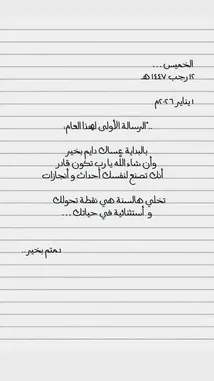 الخميس ...
١٢ رجب ١٤٤٧ هـ
١ يناير ٢٠٢٦م
.."الرسالة الأولى لهذا العام،
بالبداية عساك دايم بخير
وأن شاء الله يا رب تكون قادر
أنك تصنع لنفسك أحداث و أنجازات
تخلي هالسنة هي نقطة تحولك
و أستثنائية في حياتك ...
دمتم بخير..